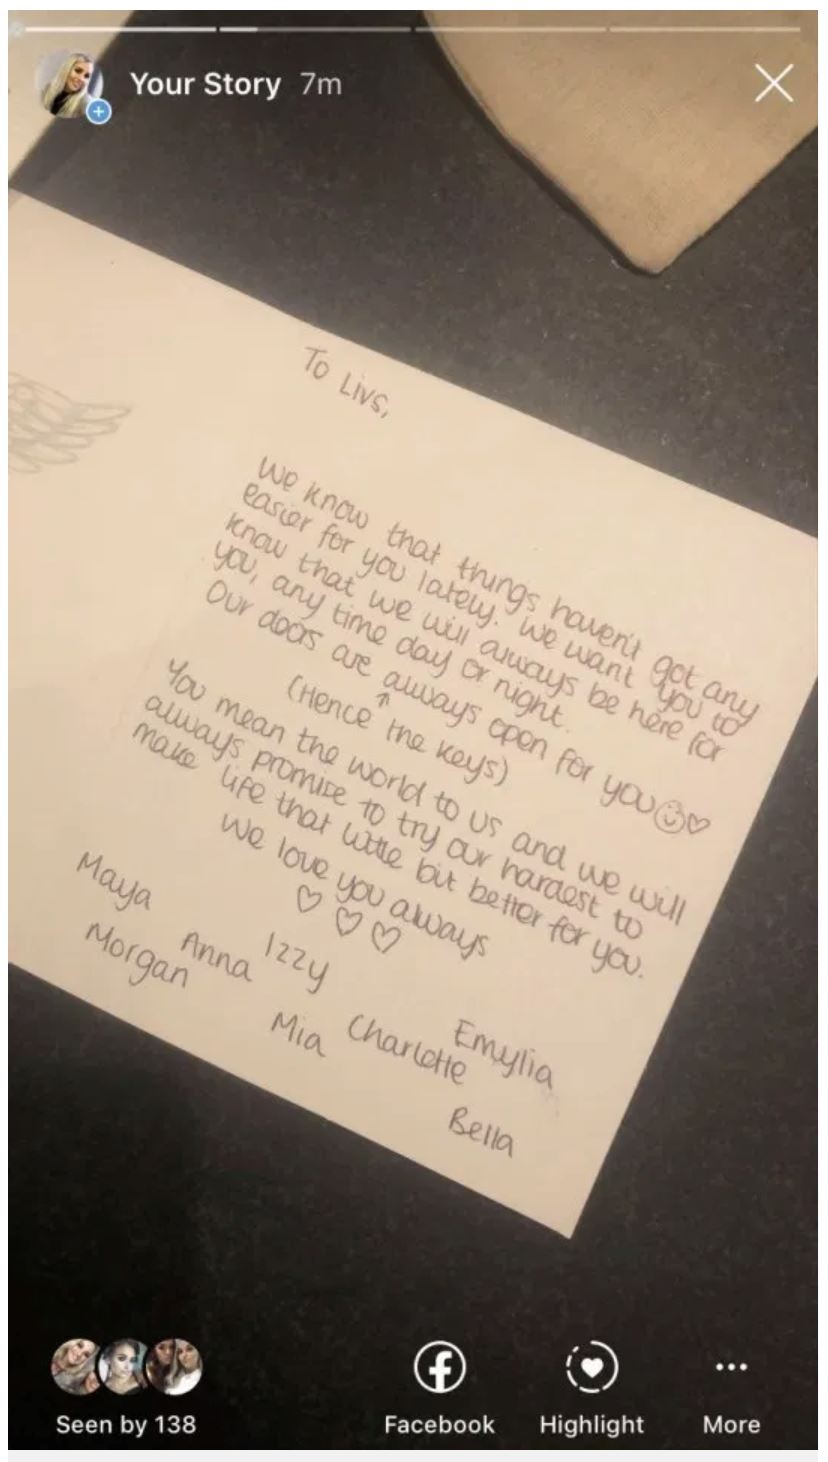 Your Story 7m
To Livs,
We know that things haven't got any
easier for you lately. We want you to
know that we will always be here for
you, any time day or night.
Our doors are always open for you
(Hence the keys)
You mean the world to us and we will
always promise to try our hardest to
make life that little bit better for you.
We love you always
Maya
Anna
Izzy
Morgan
Mia
Charlotte
Emylia
Bella
Seen by 138
Facebook
Highlight
More